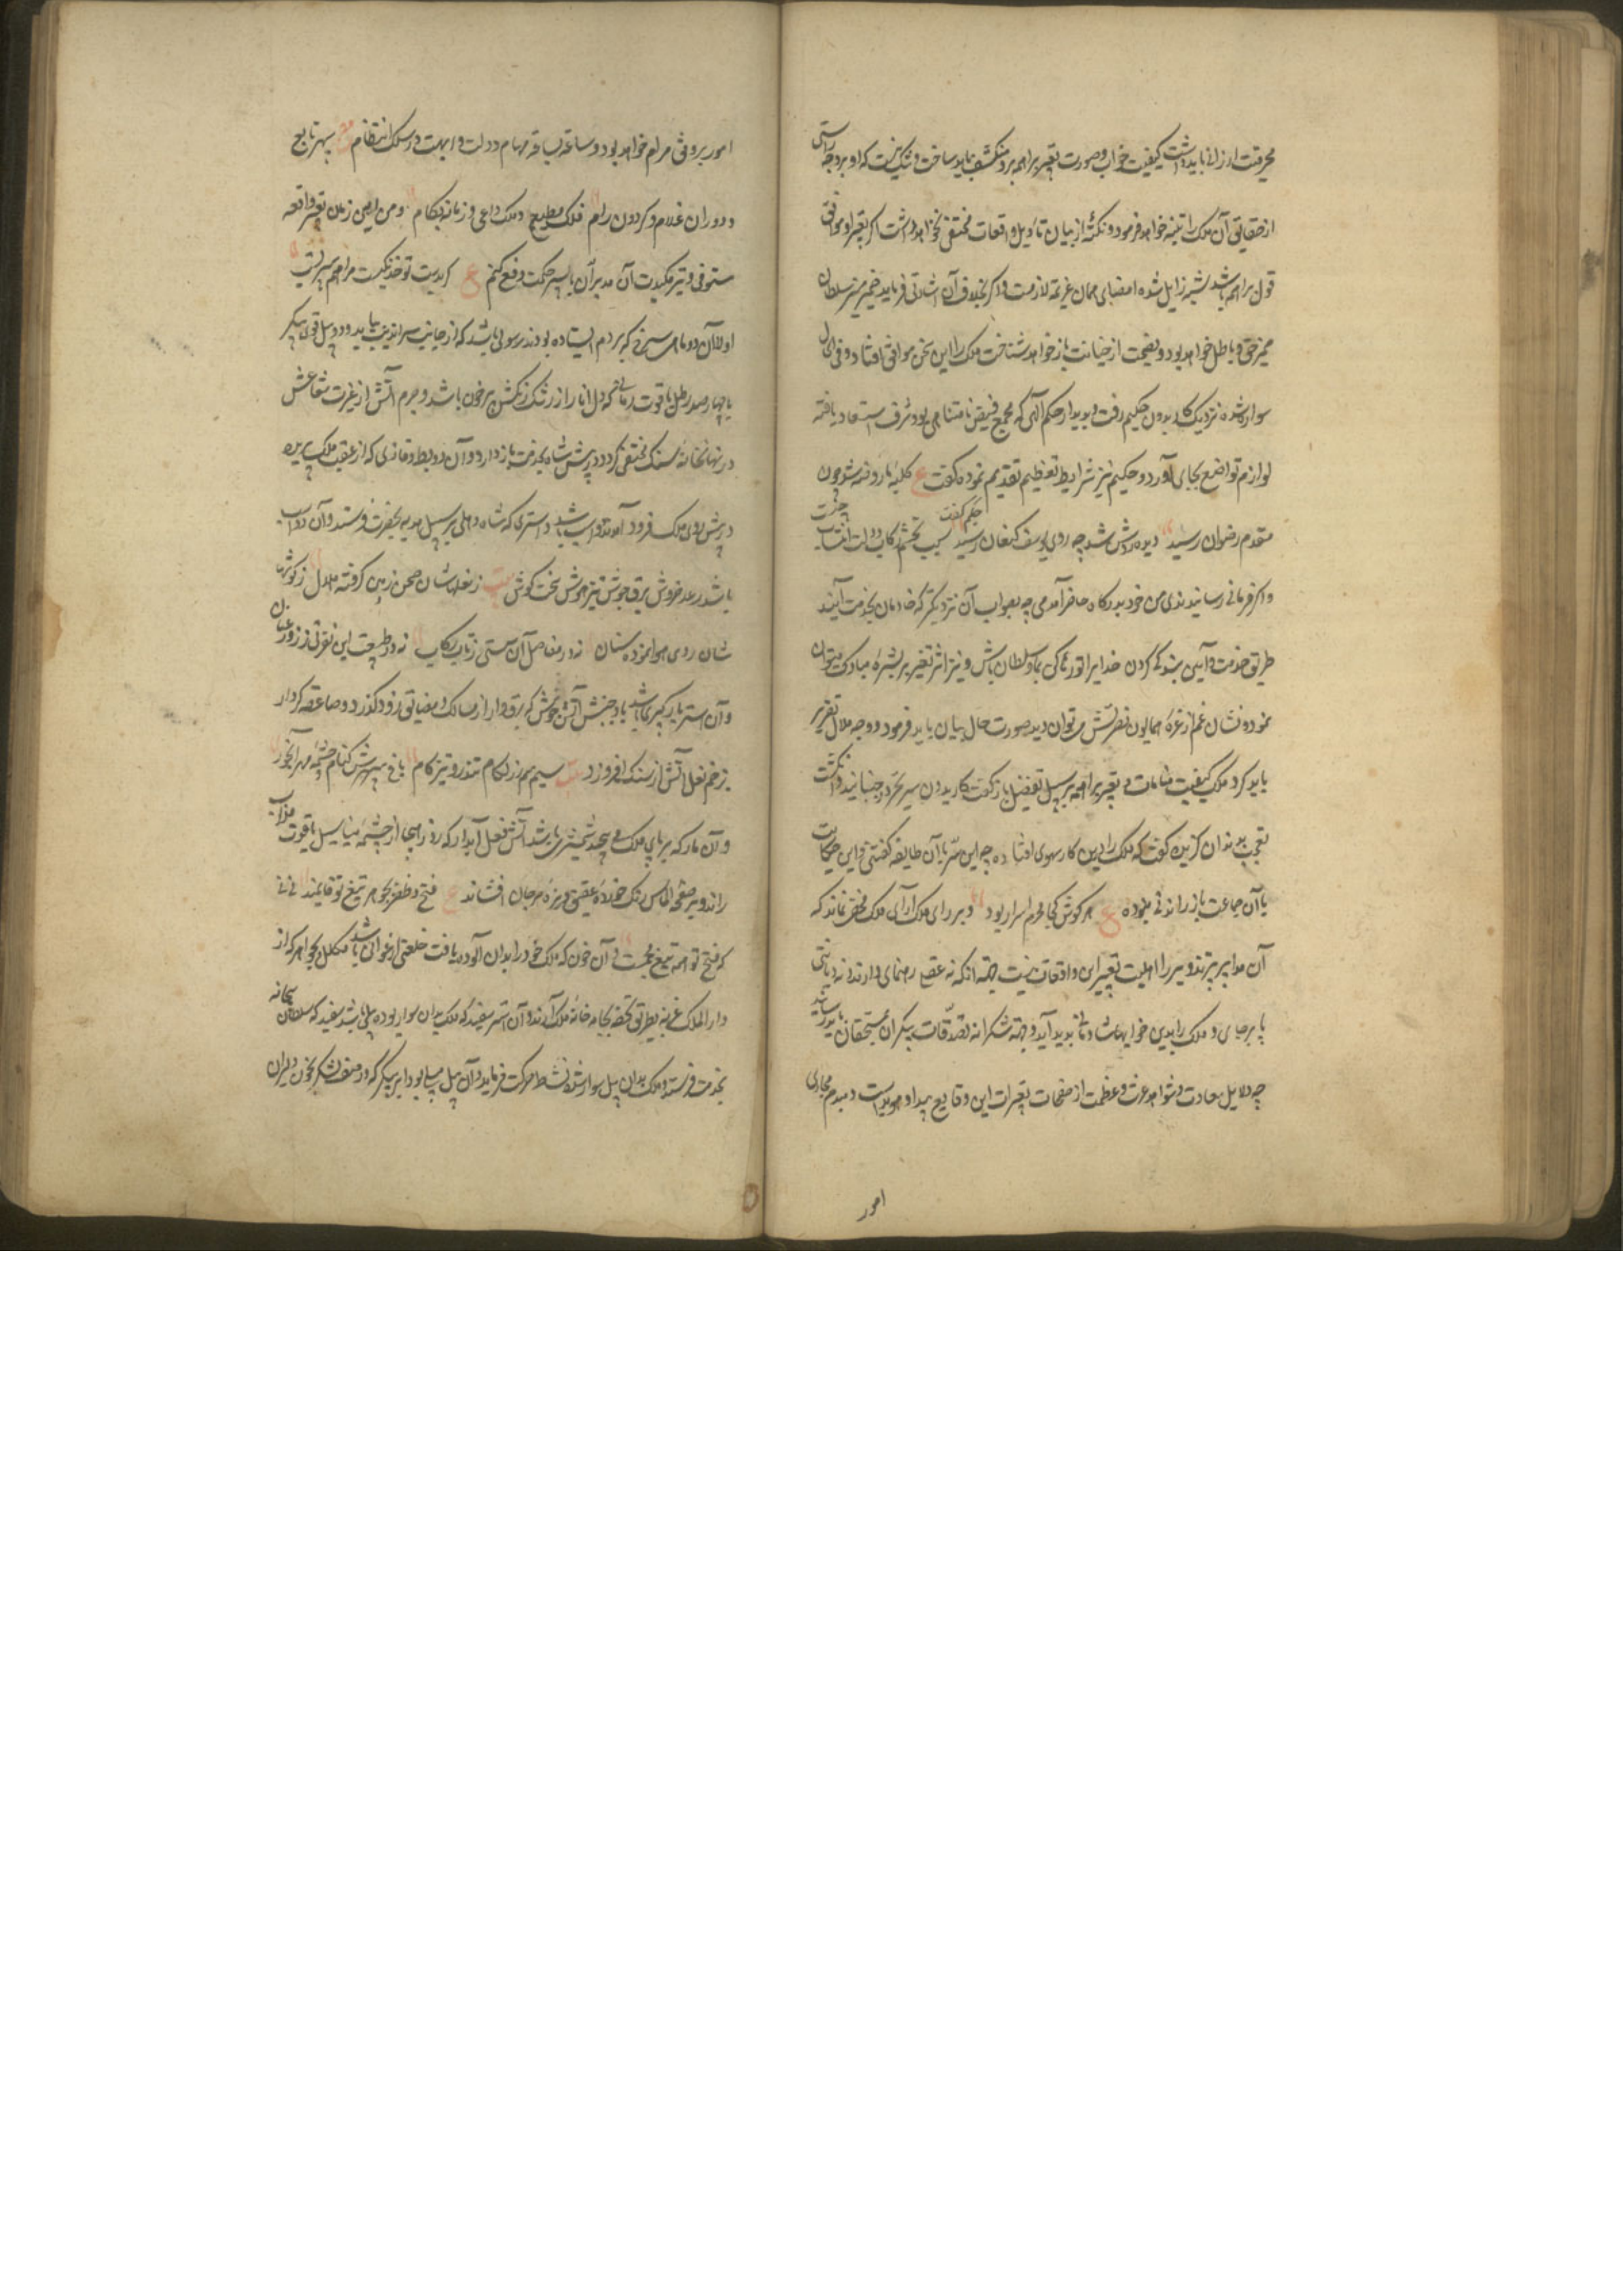 محرمیت ارزانی باید داشت کیفیت خواب و صورت تعبیر براهمه برو منکشف باید ساخت و شک نیست که او بر وجه راستی
از حقایق آن ملک را تنبیه خواهد فرمود و نکته از بیان تاویل واقعات مختفی نخواهد داشت اگر تعبیر او موافق
قول براهمه باشد شبهه زایل شده امضای همان عزیمت لازمست و اگر بخلاف آن اشارتی فرماید ضمیر منیر سلطان
ممیز حق و باطل خواهد بود و نصیحت از خیانت باز خواهد شناخت ملک را این سخن موافق افتاد و فی الحال
سوار شده نزدیک کاریدون حکیم رفت و بدیدار حکیم الهی که مجمع فیض نامتناهی بود شرف استسعاد یافته
لوازم تواضع بجای آورد و حکیم نیز شرایط تعظیم تقدیم نموده گفت ع کلبه ما روضه شد چون
مقدم رضوان رسید دیده روشن شد چه روی یوسف کنعان رسید حکیم گفت سبب تجشم رکاب دولت انتساب چیست
و اگر فرمانی رسانیدندی من خود بدرگاه حاضر آمدمی چه بصواب آن نزدیکتر که خادمان بخدمت آیند
طریق خدمت و آیین بندگی کردن خدایرا تو رها کن بما و سلطان باش و نیز اثر تغیر بر بشره مبارک میتوان
نمود و نشان غم از غره همایون نضرتش می توان دید صورت حال بیان باید فرمود و وجه ملال تقریر
باید کرد ملک کیفیت منامات و تعبیر براهمه بر سبیل تفصیل بازگفت کاریدون سر تحیر در جنبانید و انگشت
تعجب بدندان گزیده گفت که ملک را درین کار سهوی افتاده چه این سر با آن طایفه گفتنی و این حکایت
با آن جماعت باز راندنی نبوده ع هر گوش کجا محرم اسرار بود و بر رای ملک آرای ملک مخفی نماند که
آن مدابیر پرتزویر را اهلیت تعبیر این واقعات نیست جهة آنکه نه عقل رهنمای دارند و نه دیانتی
پا بر جای و ملک را بدین خوابها شادمانی باید آید و جهة شکرانه تصدقات بیکران بمستحقان باید رسانید
چه دلایل سعادت و شواهد عزت و عظمت از صفحات تعبیرات این وقایع پیدا و هویداست و مبدم مجاری
امور
امور بر وفق مرام خواهد بود و ساعة بساعة مهام دولت و ابهت در سلک انتظام سپهر تابع
و دوران غلام و گردون رام فلک مطیع و ملک داعی و زمانه بکام و من این زمان تعبیر واقعه
مستوفی و تیر مکیدت آن مدبران با سپر حکمت دفع کنم ع گر بدیت تو خدنگیست مرا هم سپریست
اولا آن دو ماهی سرخ که بر دم ایستاده بودند رسولی باشد که از جانب سراندیب بیاید و دو پیل قوی پیکر
با چهار صد رطل یاقوت رمانی که دل انار از رشک رنگش پرخون باشد و جرم آتش از غیرت شعاعش
در نهانخانه سنگ مختفی گردد در پیش شاه بخدمت باز دارد و آن دو بط و قازی که از عقب ملک پریده
در پیش روی ملک فرود آمدند دو اسب باشد و استری که شاه دهلی بر سبیل هدیه بحضرت فرستد و آن دو اسب
باشد رعد خروش برق جوش تیز هوش سخت کوش بیت ز نعلهاشان صحن زمین گرفته هلال ز گوشها
شان روی هوا نموده سنان نه در مفاصل آن سستی ز تاب رکاب نه در طبیعت این نفرتی ز زور عنان
و آن استر بارگیری باشد باد جنبش آتش جوش که برق وار از مسالک و مضایق زود گذرد و صاعقه کردار
بزخم نعل آتش از سنگ افروزد
و آن مار که بر پای ملک می پیچد شمشیری باشد آتش فعل آبدار که روز هیجا از چشمه مینا سیل یاقوت مذاب
راند و بر صفحه الماس رنگ خرده عقیق و ریزه مرجان افشاند ع فتح و ظفر بجوهر تیغ تو قایمند نی نی
که فتح تو همه تیغ مجسمست و آن خون که ملک خود را بدان آلوده یافت خلعتی ارغوانی باشد مکلل بجواهر که از
دار الملک غزنه بطریق تحفه بجامه خانه ملک آرند و آن استر سفید که ملک بدان سوار بوده پیلی باشد سفید که سلطان بیجانه
بخدمت فرستد و ملک بدان پیل سوار شده نشاط حرکت فرماید و آن پیل بود ابر پیکر که در صف لشکر بخون دلیران